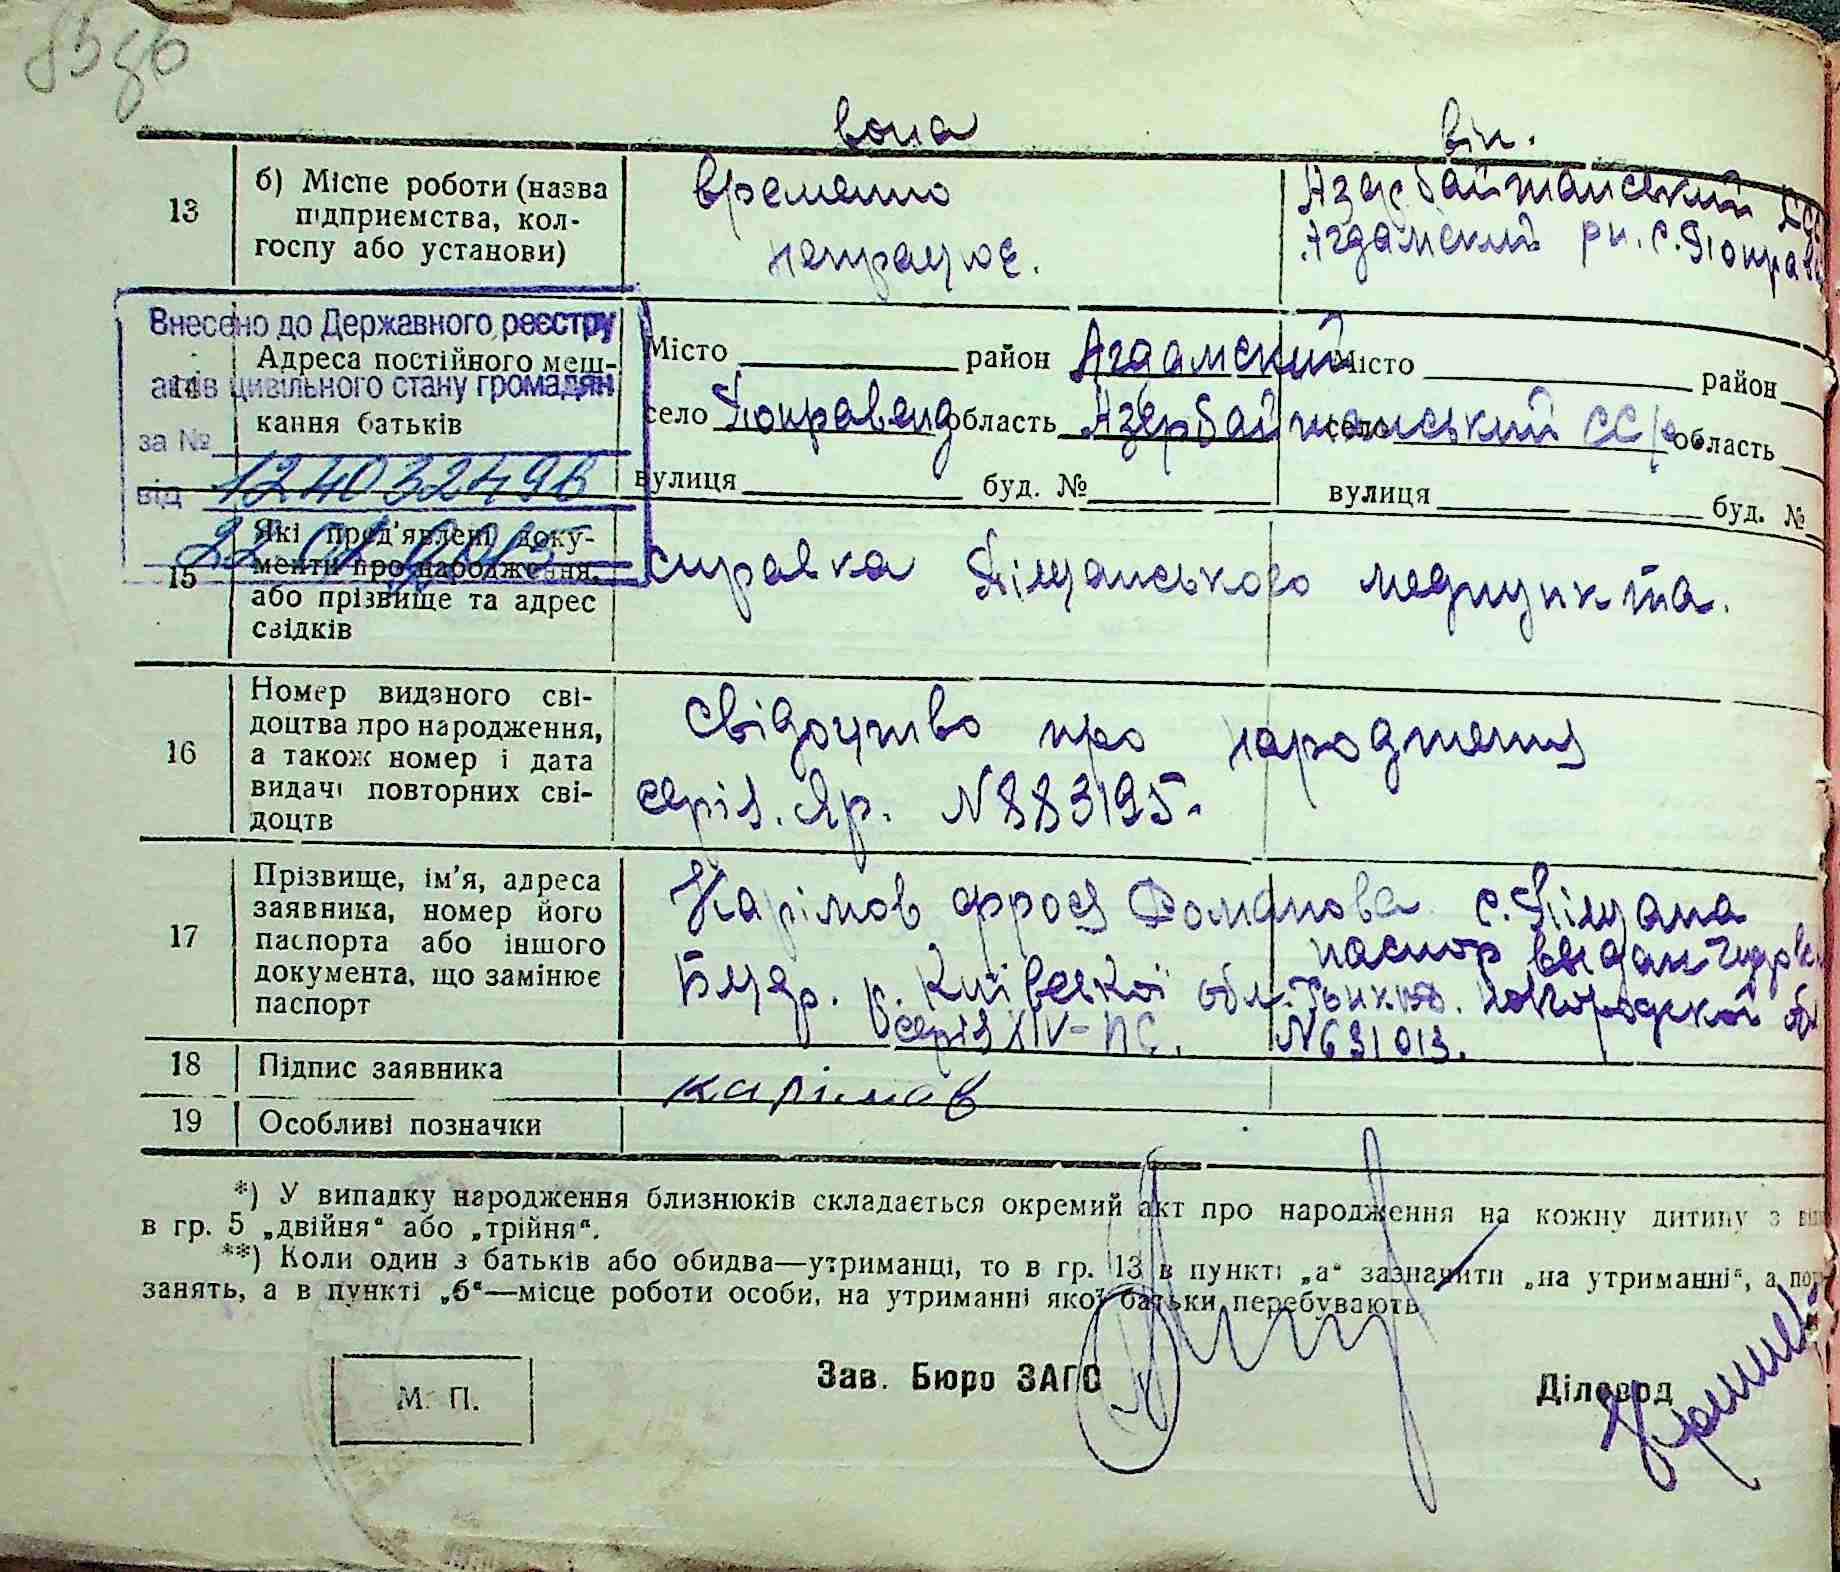 вона він.
13 б) Місце роботи (назва підприємства, колгоспу або установи)
временно
непрацює.
Азербайжанський ССР
Агдамский рн. с.
Внесено до Державного реєстру
актів цивільного стану громадян
за №
1240324
від
22
14 Адреса постійного мешкання батьків
Місто район Агдамский
село область Азербайжанський ССр.
вулиця буд. №
місто район
село область
вулиця буд. №
15 Які пред'явлені документи про народження, або прізвище та адрес свідків
справка Піщанського медпункта.
16 Номер виданого свідоцтва про народження, а також номер і дата видачі повторних свідоцтв
свідоцтво про народження
серія. Яр. № 883195.
17 Прізвище, ім'я, адреса заявника, номер його паспорта або іншого документа, що замінює паспорт
Карімов Фрося с. Піщана
паспор выдан
Київскої обл.
серія XIV-ПС. № 631013.
18 Підпис заявника
карімов
19 Особливі позначки
*) У випадку народження близнюків складається окремий акт про народження на кожну дитину з
в гр. 5 „двійня“ або „трійня“.
**) Коли один з батьків або обидва—утриманці, то в гр. 13 в пункті „а“ зазначити „на утриманні“, а
занять, а в пункті „б“—місце роботи особи, на утриманні якої батьки перебувають
М. П.
Зав. Бюро ЗАГС
Діловод